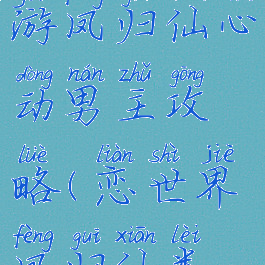 游凤归仙心
dòng nán zhǔ gōng
动男主攻
lüè liàn shì jiè
略(恋世界
fèng guī xiān lèi
凤归仙类